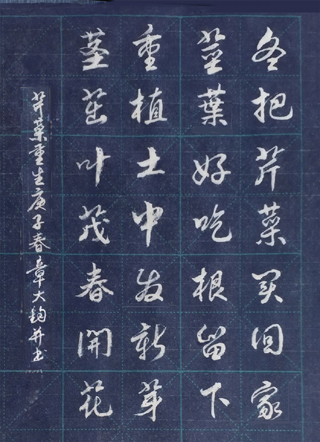 冬把芹菜買回家
莖葉好吃根留下
重植土中发新芽
茎茁叶茂春開花
芹菜重生庚子春章大鈞并书